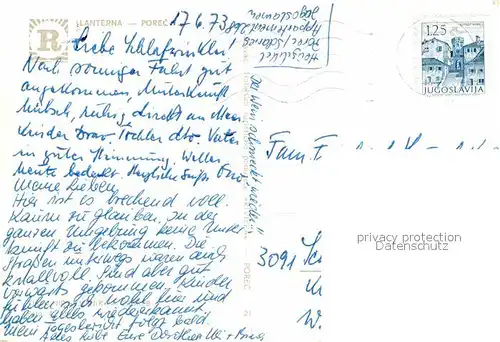 LANTERNA - POREČ
R
17.6.73
Liebe Schlafwinkler!
Nach sonniger Fahrt gut
angekommen, Unterkunft
hübsch, ruhig, direkt am Meer
Kinder brav Tochter dto. Vater
in guter Stimmung. Wetter
heute bedeckt. Herzliche Grüße
Meine Lieben,
Hier ist es brechend voll.
Kaum zu glauben, in der
ganzen Umgebung keine Unter
kunft zu bekommen. Die
Straßen unterwegs waren auch
knallvoll. Sind aber gut
vorwärts gekommen. Kinder
fühlen sich wohl hier und
haben alles wiedererkannt.
Mein folgt bald.
Alles Liebe Eure Dorothea
Der Wein schmeckt wieder!!
Jugoslawien
POREČ
1.25
JUGOSLAVIJA
Fam.
3091
privacy protection
Datenschutz